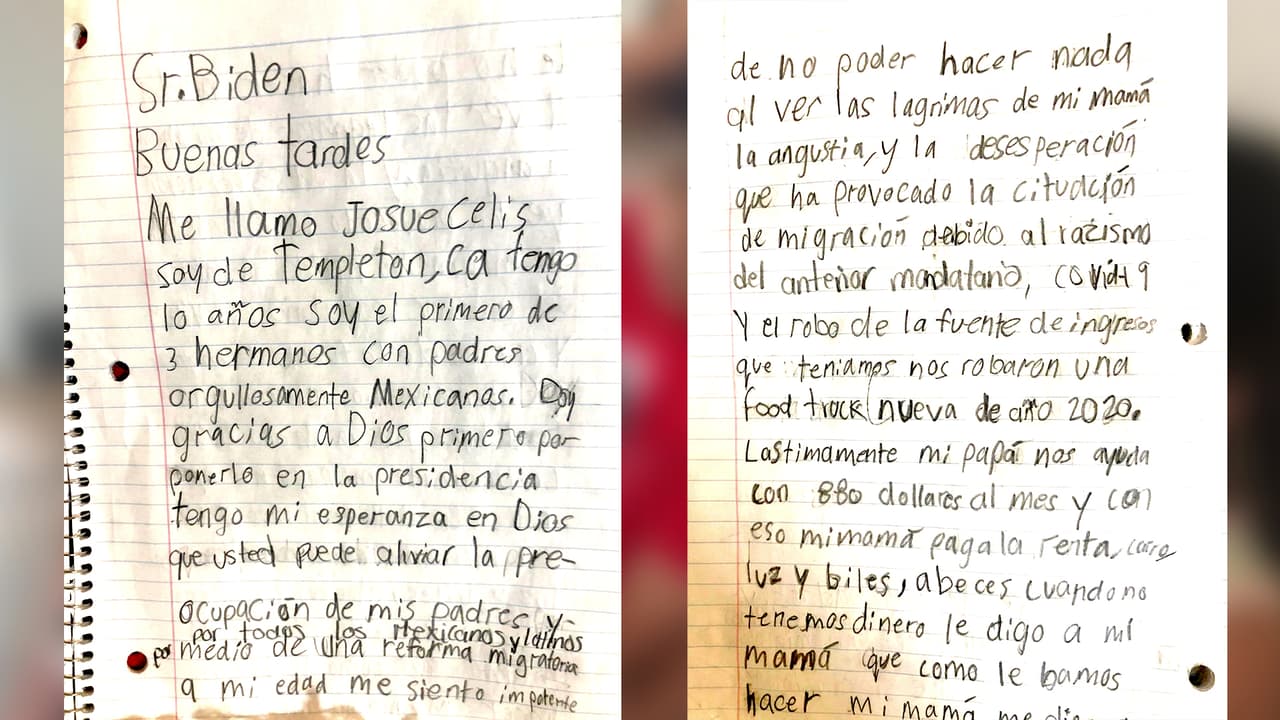 Sr. Biden
Buenas tardes
Me llamo Josue Celis
soy de Templeton, Ca tengo
10 años soy el primero de
3 hermanos con padres
orgullosamente Mexicanos. Doy
gracias a Dios primero por
ponerlo en la presidencia
tengo mi esperanza en Dios
que usted puede aliviar la pre-
ocupación de mis padres y-
por todos los Mexicanos y latinos
por medio de una reforma migratoria
a mi edad me siento impotente
de no poder hacer nada
al ver las lagrimas de mi mamá
la angustia, y la desesperación
que ha provocado la cituación
de migración debido al razismo
del anterior mandatario, covid19
Y el robo de la fuente de ingresos
que teniamos nos robaron una
food truck nueva de año 2020.
Lastimamente mi papá nos ayuda
con 880 dollares al mes y con
eso mi mamá paga la renta, carro
luz y biles, abeces cuando no
tenemos dinero le digo a mi
mamá que como le bamos
hacer mi mamá me